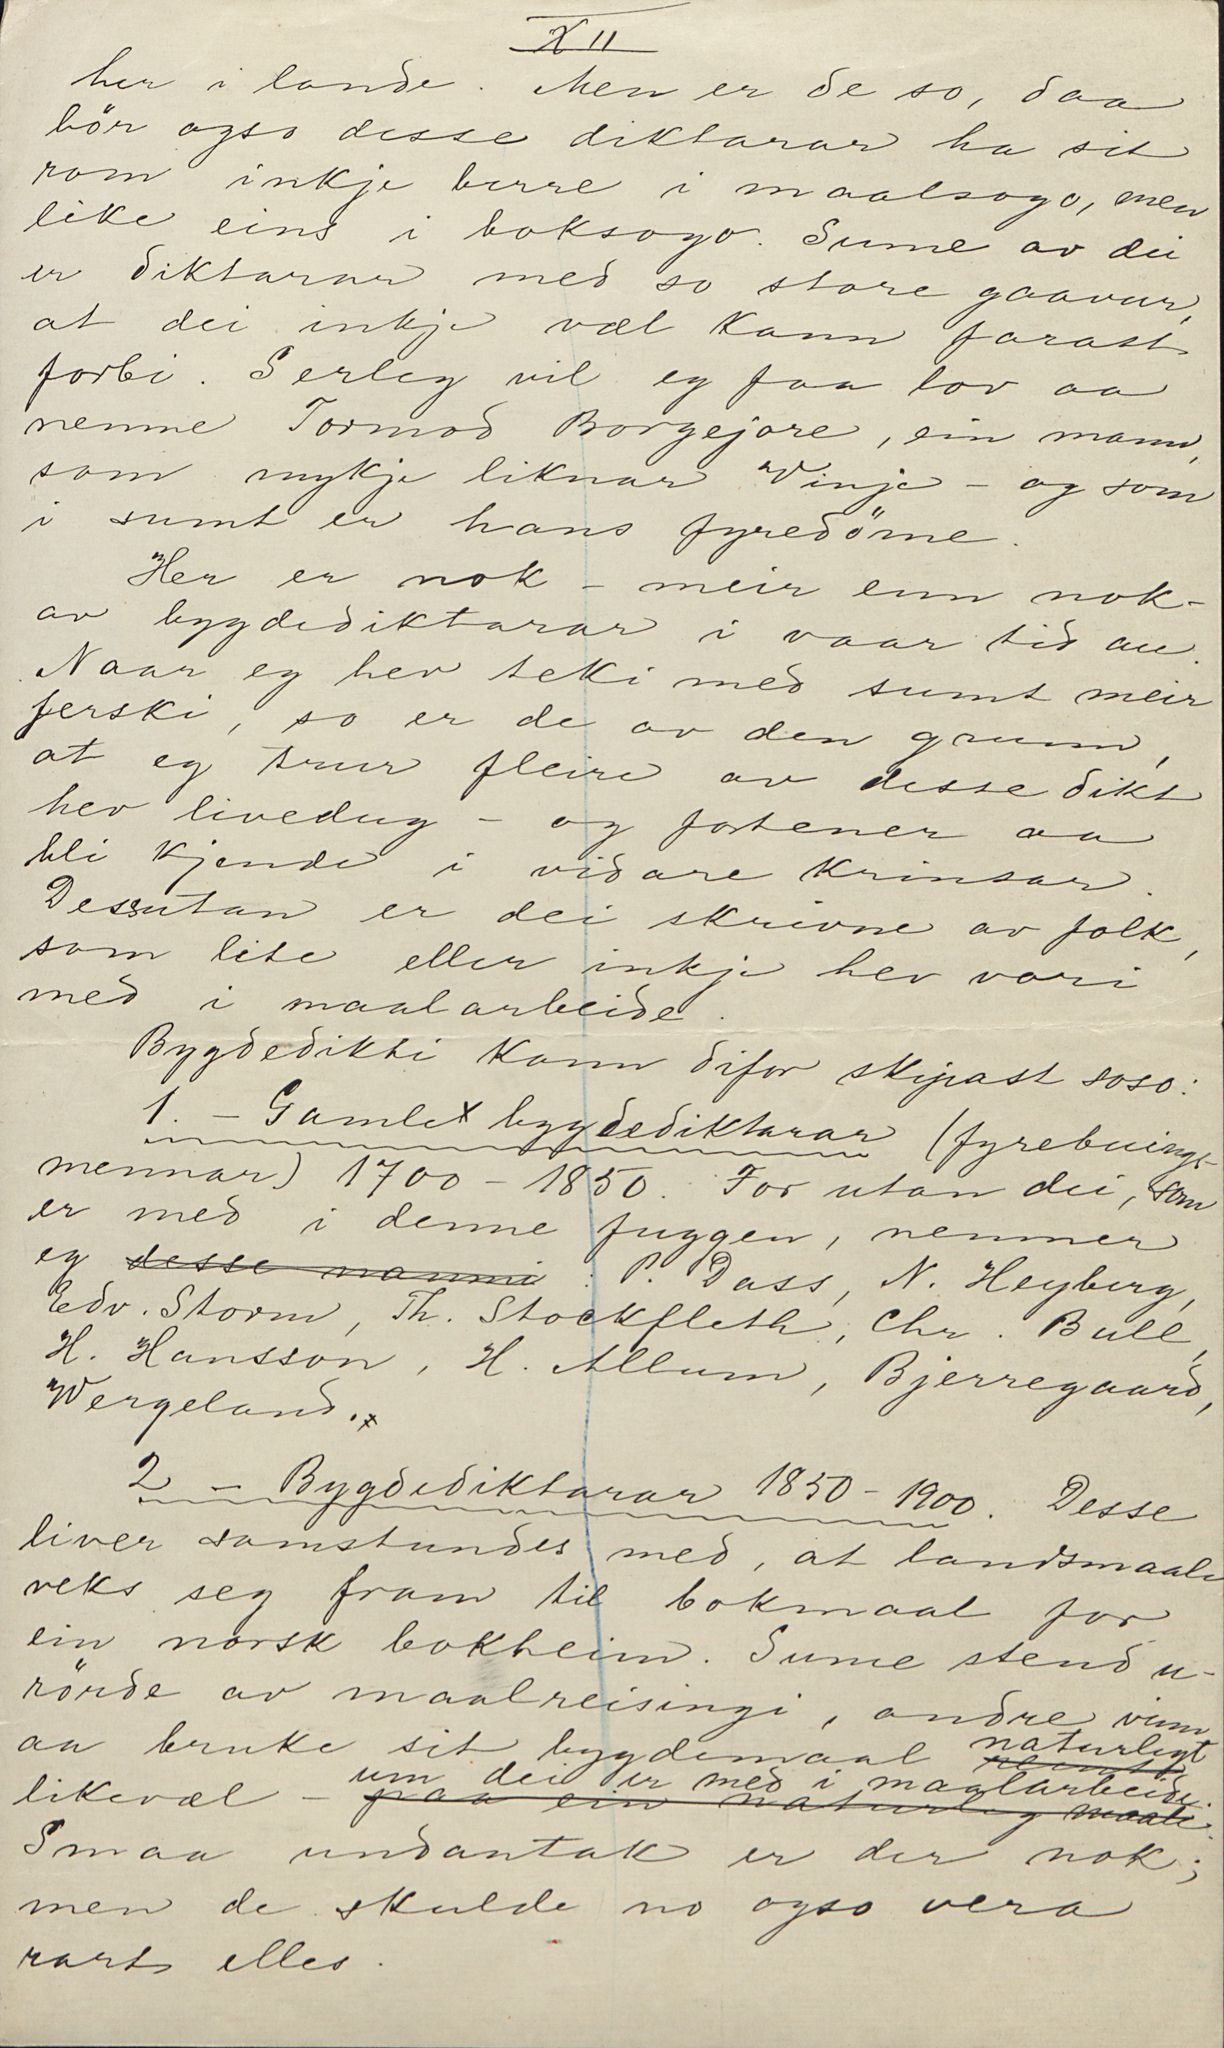 XII
her i lande. Men er de so, daa
bör ogso desse diktarar ha sit
rom inkje berre i maalsogo, men
like eins i boksogo. Sume av dei
er diktarar med so store gaavur,
at dei inkje væl kann farast
forbi. Serleg vil eg faa lov aa
nemne Tormod Borgejore, ein mann,
som mykje liknar Vinje - og som
i sumt er hans fyredöme.
Her er nok - meir enn nok -
av bygdediktarar i vaar tid au.
Naar eg hev teki med sumt meir
ferski, so er de av den grunn,
at eg trur fleire av desse dikt
hev livedug - og fortener aa
bli kjende i vidare krinsar.
Dessutan er dei skrivne av folk,
som lite eller inkje hev vori
med i maalarbeide.
Bygdedikti kann difor skipast soso:
1. - Gamle x bygdediktarar (fyrebuings-
mennar) 1700 - 1850. For utan dei, som
er med i denne fuggen, nemner
eg desse namni: P. Dass, N. Heyberg,
Edv. Storm, Th. Stockfleth, Chr. Bull,
H. Hansson, H. Allum, Bjerregaard,
Wergeland. x
2 - Bygdediktarar 1850 - 1900. Desse
liver samstundes med, at landsmaale
veks seg fram til bokmaal for
ein norsk bokheim. Sume stend u-
rörde av maalreisingi, andre vinn
aa bruke sit bygdemaal naturlegt
likevæl - um dei er med i maalarbeide.
paa ein naturleg maate.
Smaa undantak er der nok;
men de skulde no ogso vera
rart elles.